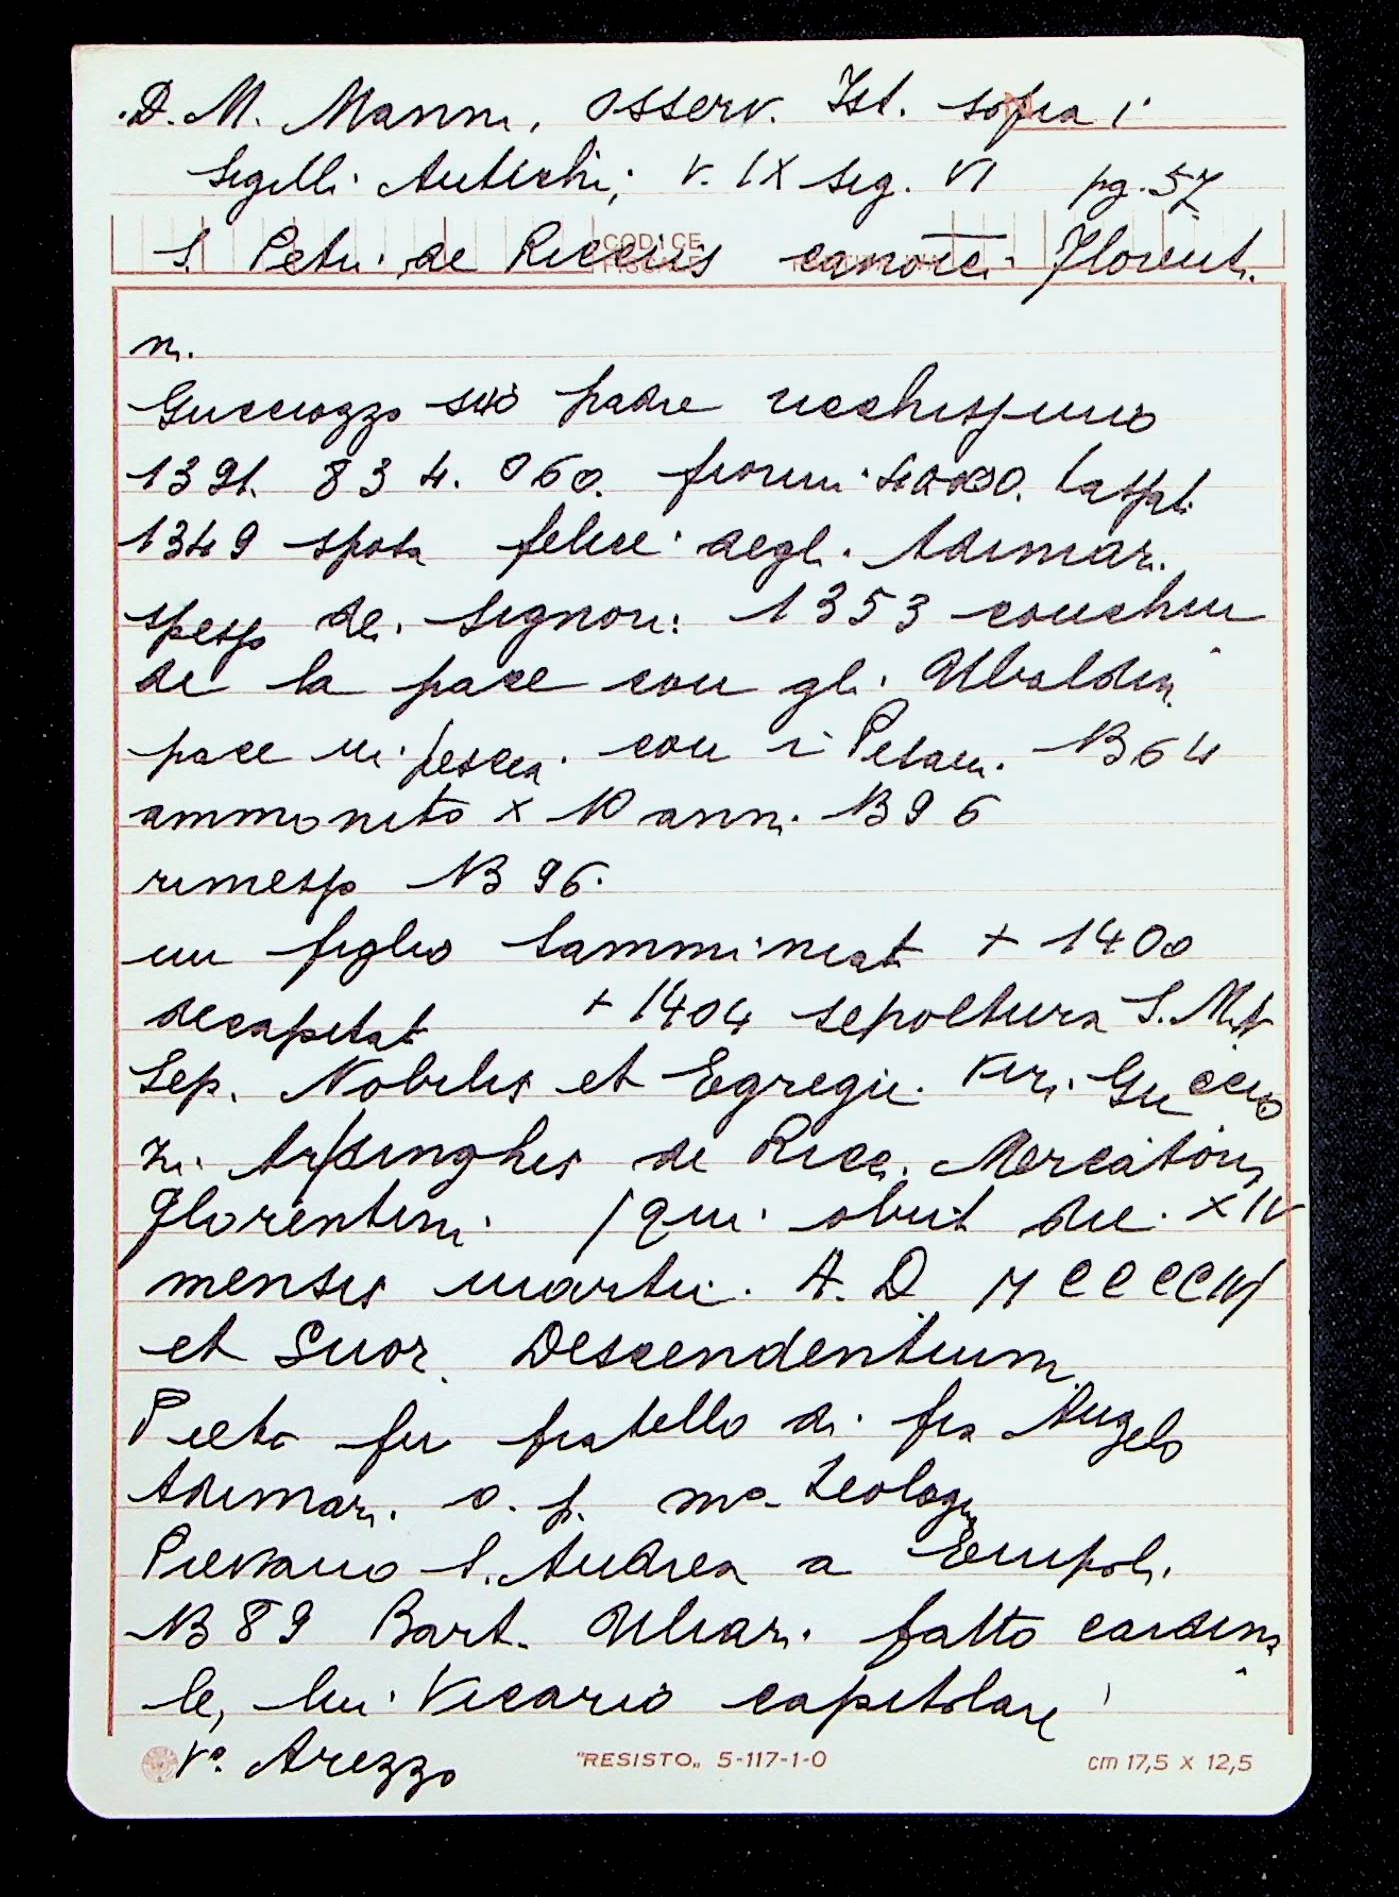 D. M. Manni, Osserv. Ist. sopra i
Sigilli Antichi; v. IX sig. VI pg. 57
CODICE
S. Petri de Ricciis canoici Florent.
ni.
Gucciozzo suo padre ricchissimo
1391. 834. 060. fiorini
1349 sposa felice degli Adimari.
spesso dei Signori: 1353 conchiu
de la pace con gli Ubaldini
pace in pescia con i Pisani. 1364
ammonito x 10 anni. 1396
rimesso 1396.
un figlio + 1400
decapitat + 1404 sepoltura S. M. N
Sep. Nobilis et Egregii Viri Guccio
zi Ardinghis de Ricci Mercatoris
Florentini / qui obiit die XIV
mensis martii. A. D. MCCCCIV/
et Suor. Descendentium
Pietro fu fratello di fra Angelo
Adimari o. p. mo Teologia
Pievano S. Andrea a Empoli.
1389 Bart. Uliari fatto cardina
le, lui Vicario capitolare
Vo. Arezzo
"RESISTO„ 5-117-1-0 cm 17,5 x 12,5